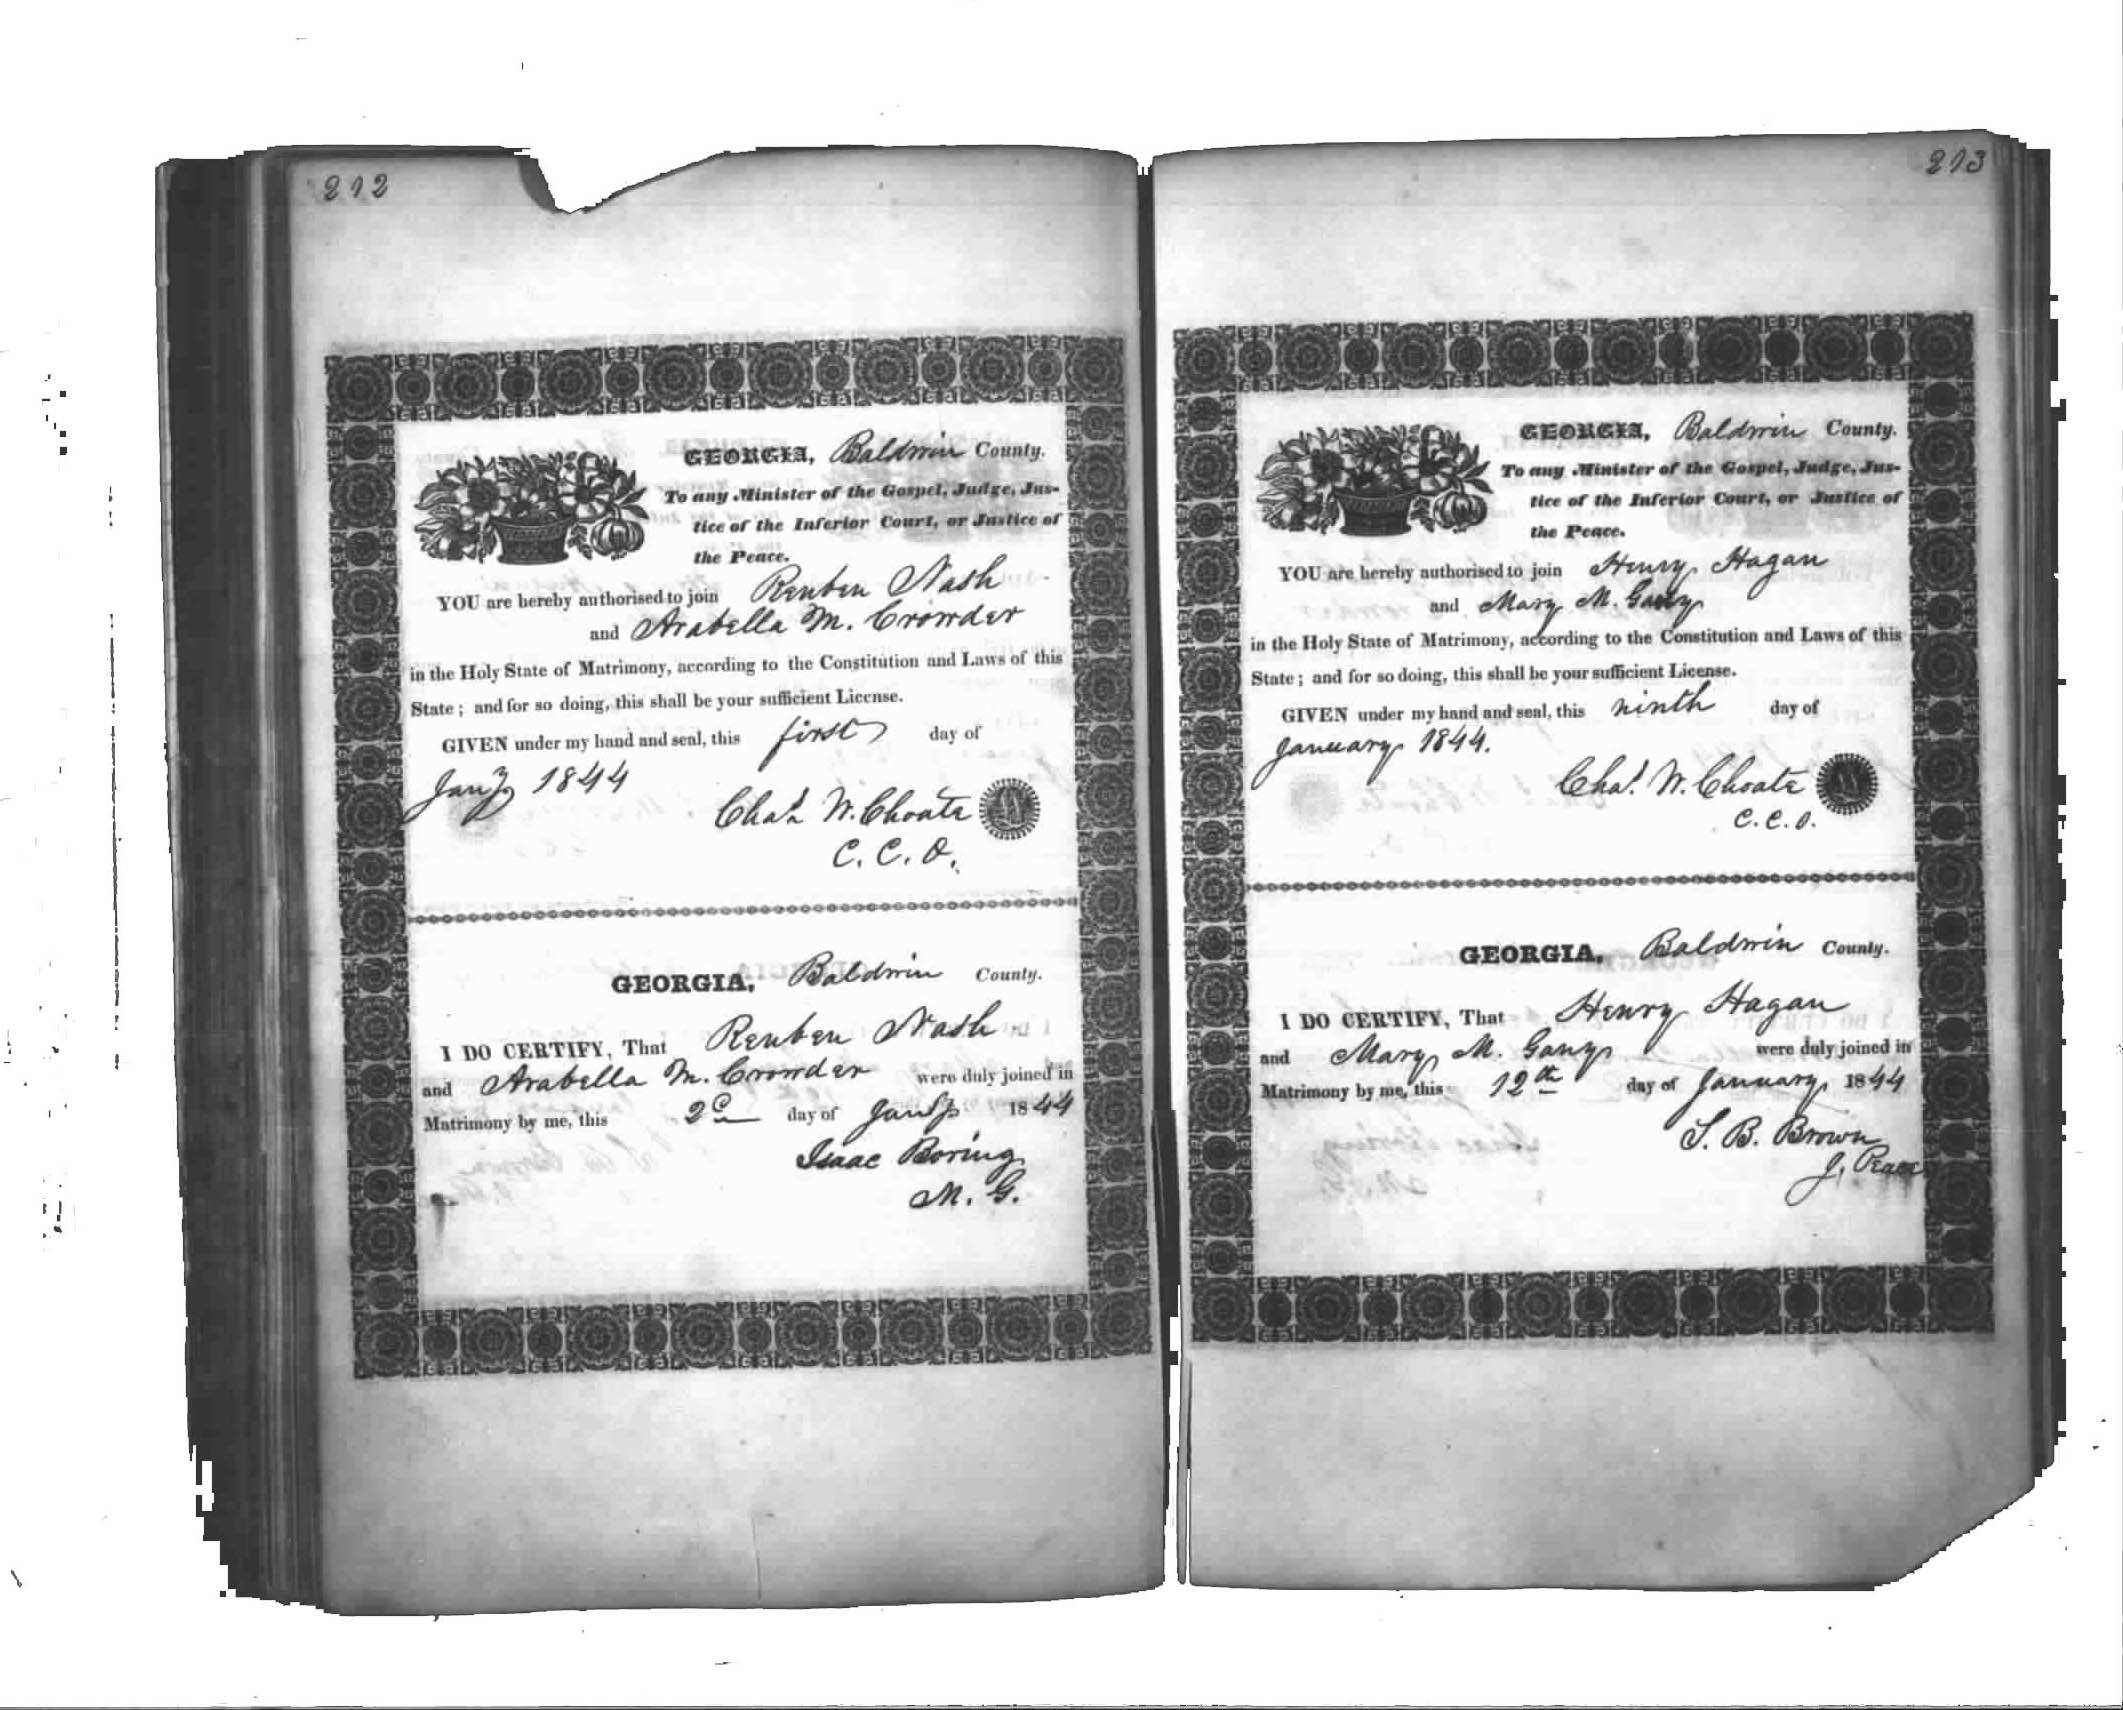 212
GEORGIA, Baldwin County.
To any Minister of the Gospel, Judge, Jus-
tice of the Inferior Court, or Justice of
the Peace.
YOU are hereby authorised to join Reuben Nash
and Arabella M. Crowder
in the Holy State of Matrimony, according to the Constitution and Laws of this
State; and for so doing, this shall be your sufficient License.
GIVEN under my hand and seal, this first day of
Jany 1844
Chas. W. Choate
C. C. O.
GEORGIA, Baldwin County.
I DO CERTIFY, That Reuben Nash
and Arabella M. Crowder were duly joined in
Matrimony by me, this 2d day of Jany 1844
Isaac Boring
M. G.
213
GEORGIA, Baldwin County.
To any Minister of the Gospel, Judge, Jus-
tice of the Inferior Court, or Justice of
the Peace.
YOU are hereby authorised to join Henry Hagan
and Mary M.
in the Holy State of Matrimony, according to the Constitution and Laws of this
State; and for so doing, this shall be your sufficient License.
GIVEN under my hand and seal, this ninth day of
January 1844.
Chas. W. Choate
C. C. O.
GEORGIA, Baldwin County.
I DO CERTIFY, That Henry Hagan
and Mary M. Gany were duly joined in
Matrimony by me, this 12th day of January 1844
S. B. Brown
J. Peace